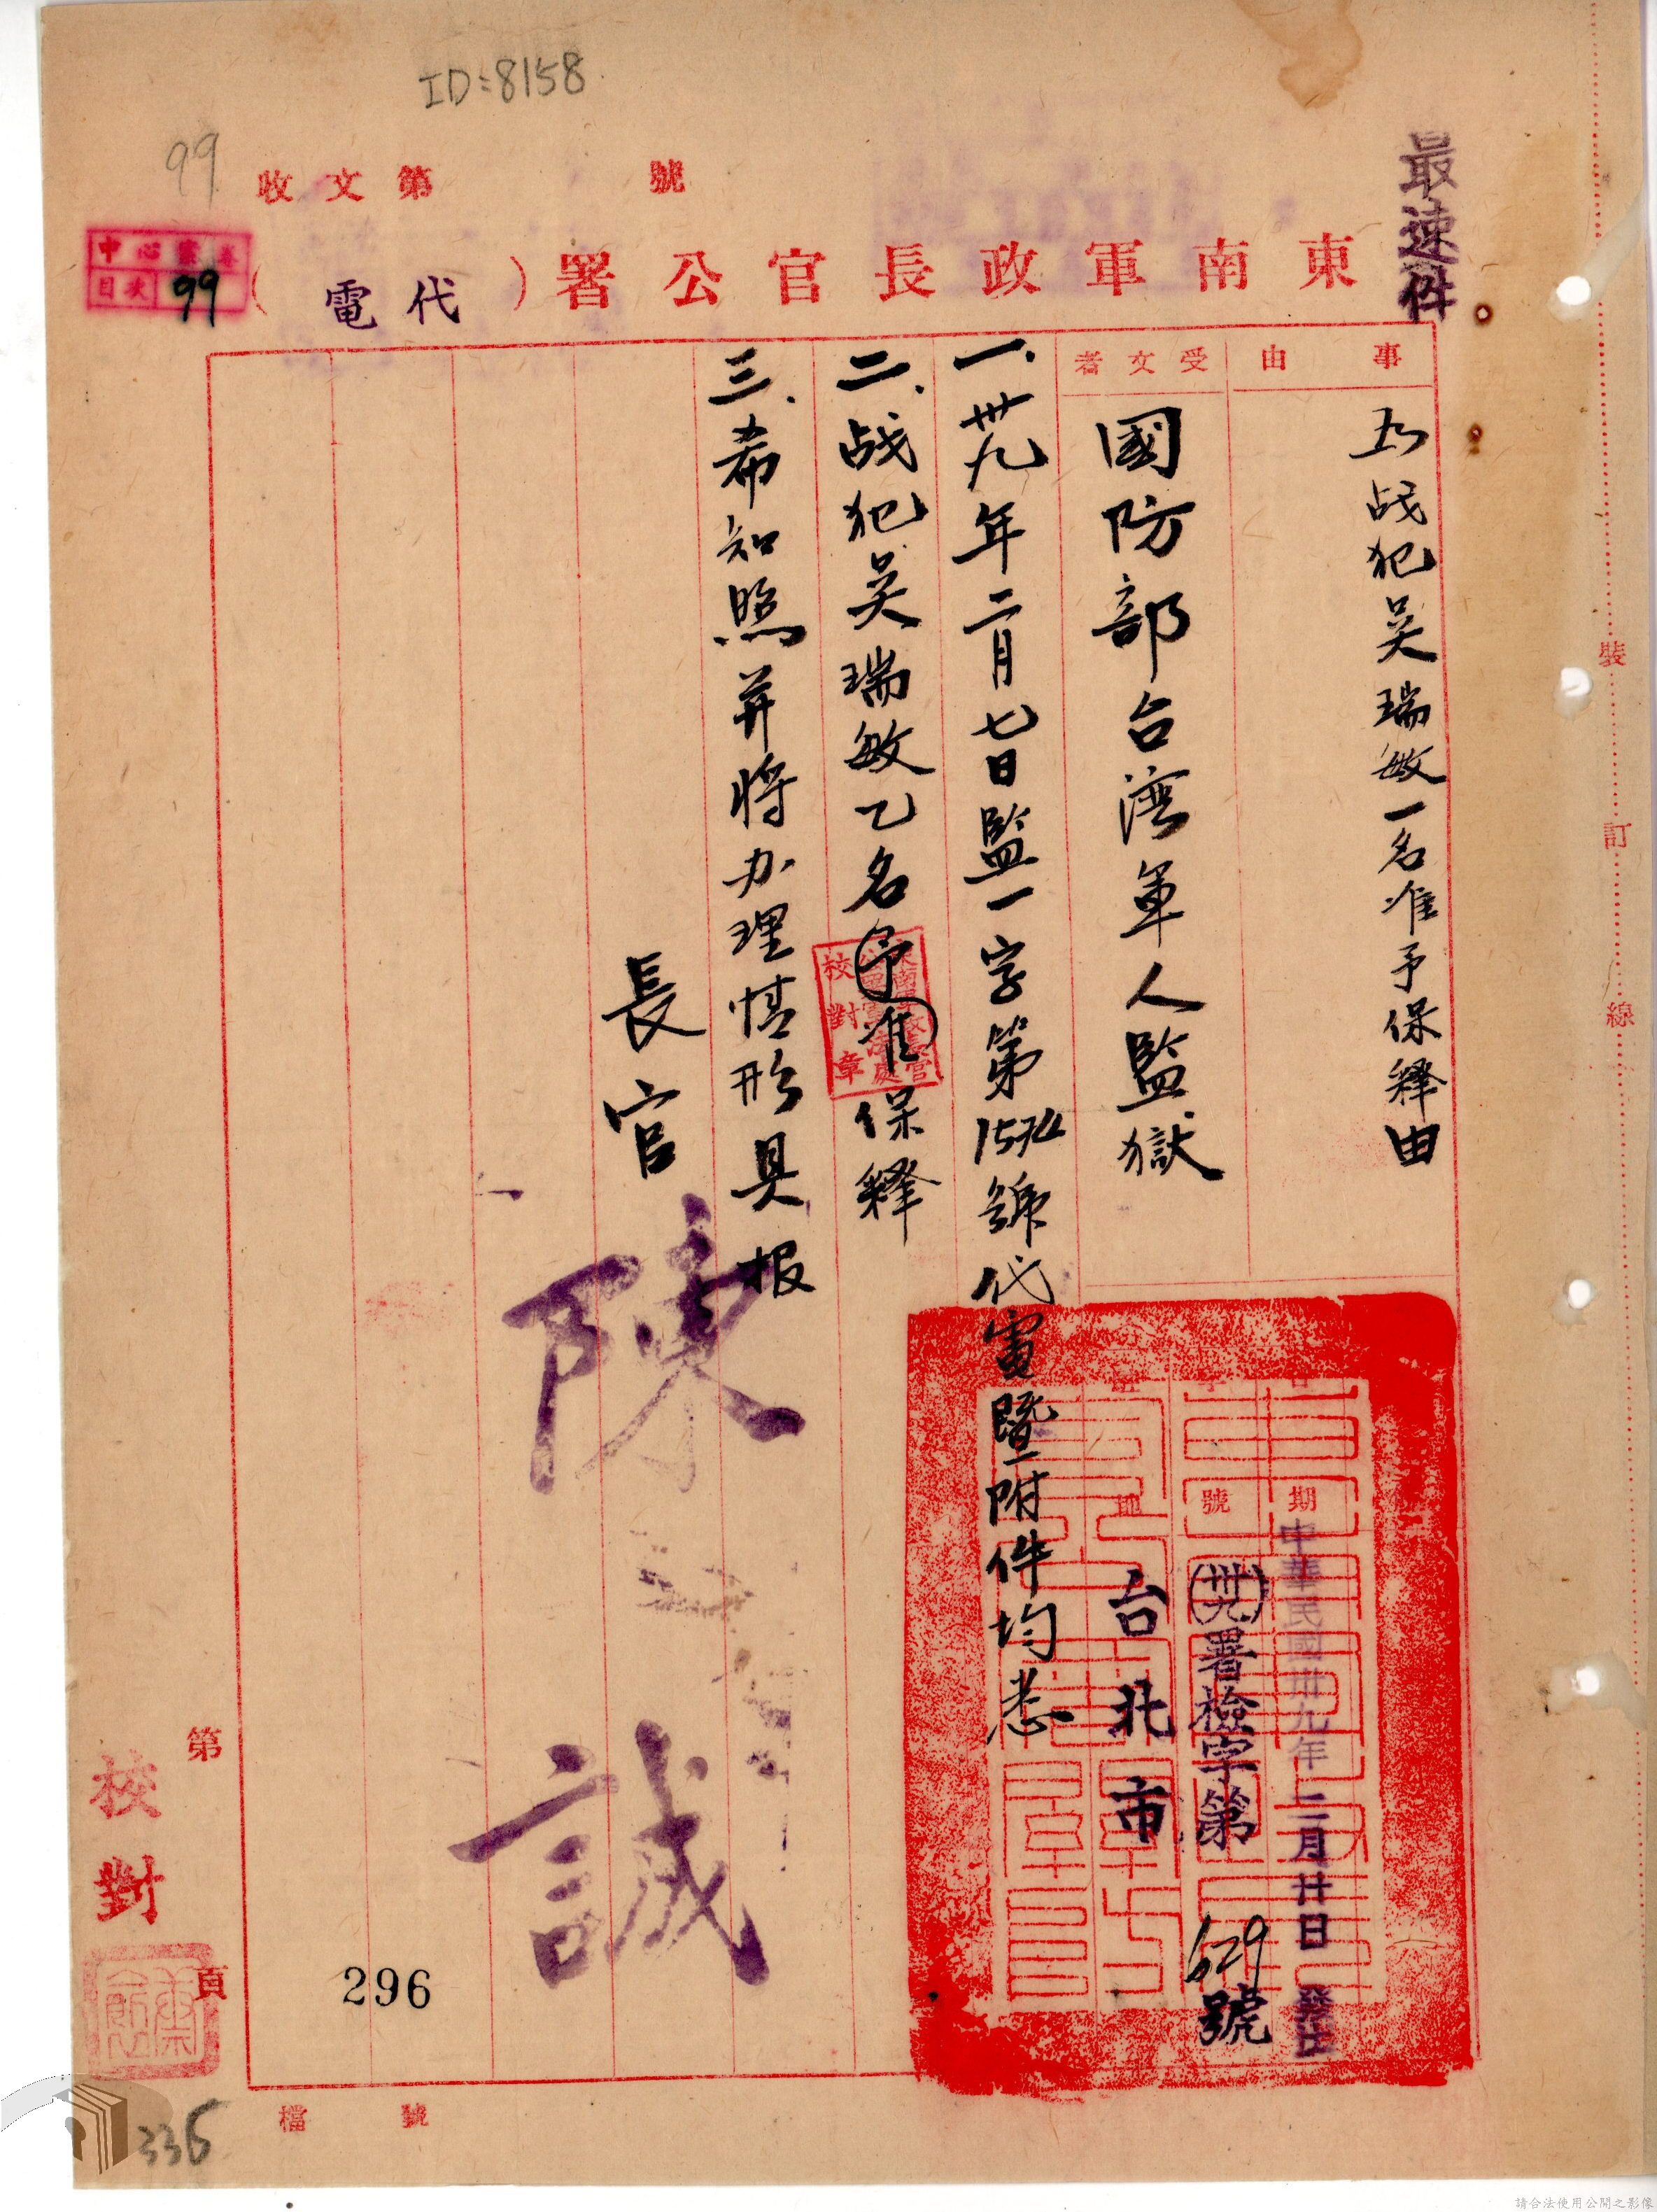 ID:8158
99
收文第 號
最速件
中心叢卷
目次 99
東南軍政長官公署（代電）
事由
為战犯吴瑞敏一名准予保釋由
受文者
國防部台湾軍人監獄
日期
中華民國卅九年二月廿日發出
字號
(卅九)署檢字第629號
地
台北市
一、卅九年二月七日監一字第1574號代電暨附件均悉
二、战犯吴瑞敏乙名予准保釋
校對章
三、希知照并将办理情形具报
長官
陳誠
裝訂線
第
頁
校對
296
檔 號
336
請合法使用公開之影像